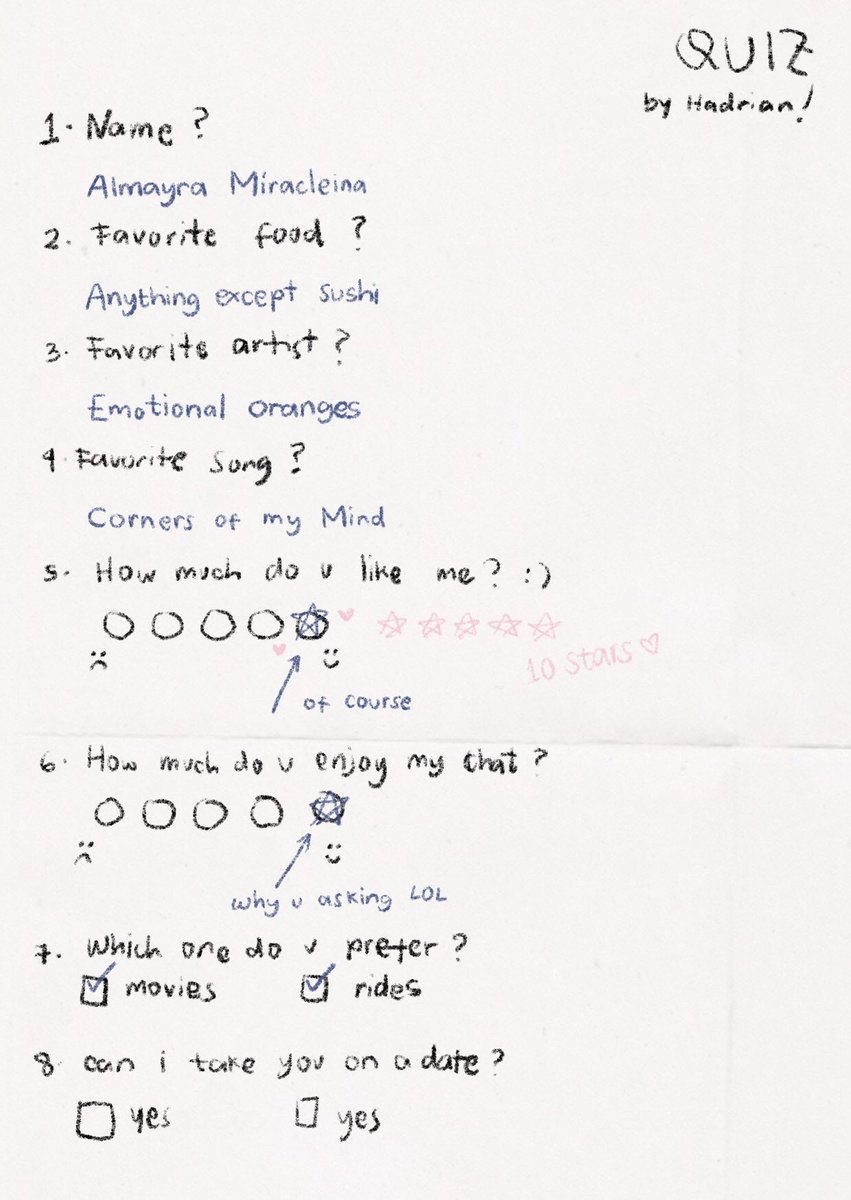 QUIZ
by Hadrian!
1. Name?
Almayra Miracleina
2. Favorite food?
Anything except sushi
3. Favorite artist?
Emotional oranges
4. Favorite song?
Corners of my Mind
5. How much do u like me? :)
10 stars
of course
6. How much do u enjoy my chat?
why u asking LOL
7. Which one do u prefer?
movies rides
8. can i take you on a date?
yes yes